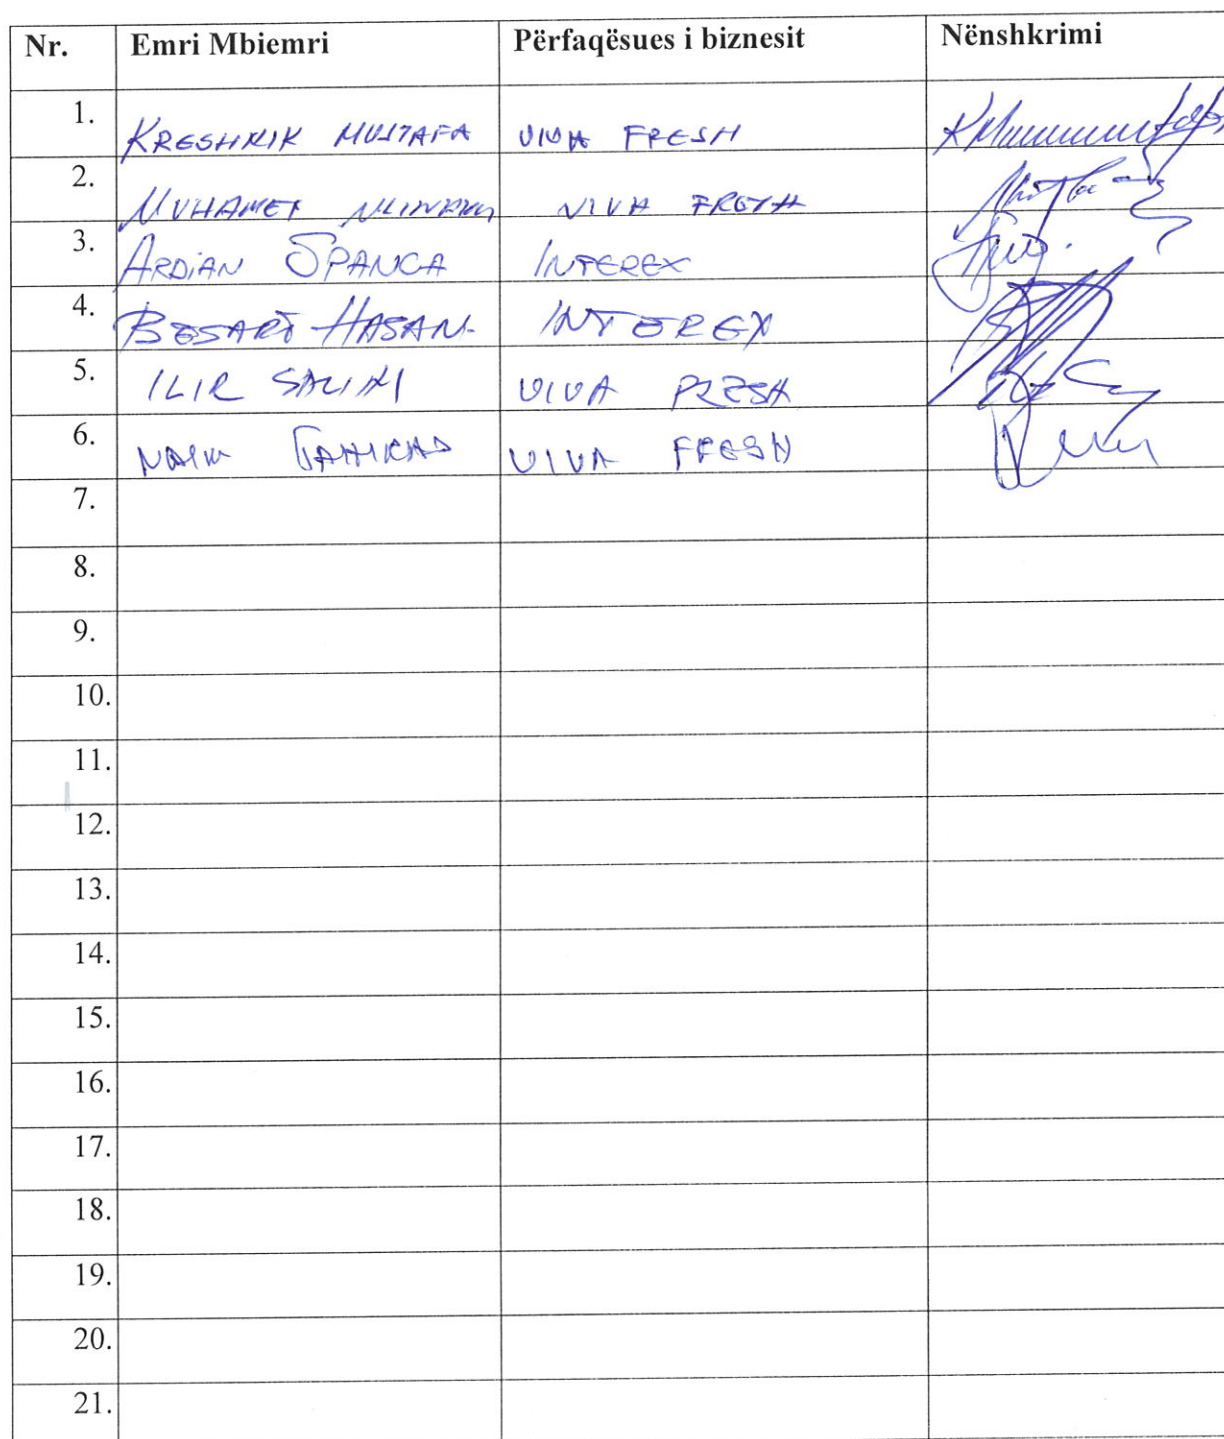 Nr. Emri Mbiemri Përfaqësues i biznesit Nënshkrimi
1. KRESHNIK MUSTAFA VIVA FRESH
2. MUHAMET VIVA FRESH
3. ARDIAN SPANCA INTEREX
4. BESART HASANI INTEREX
5. ILIR SALIHI VIVA FRESH
6. NAIM VIVA FRESH
7.
8.
9.
10.
11.
12.
13.
14.
15.
16.
17.
18.
19.
20.
21.